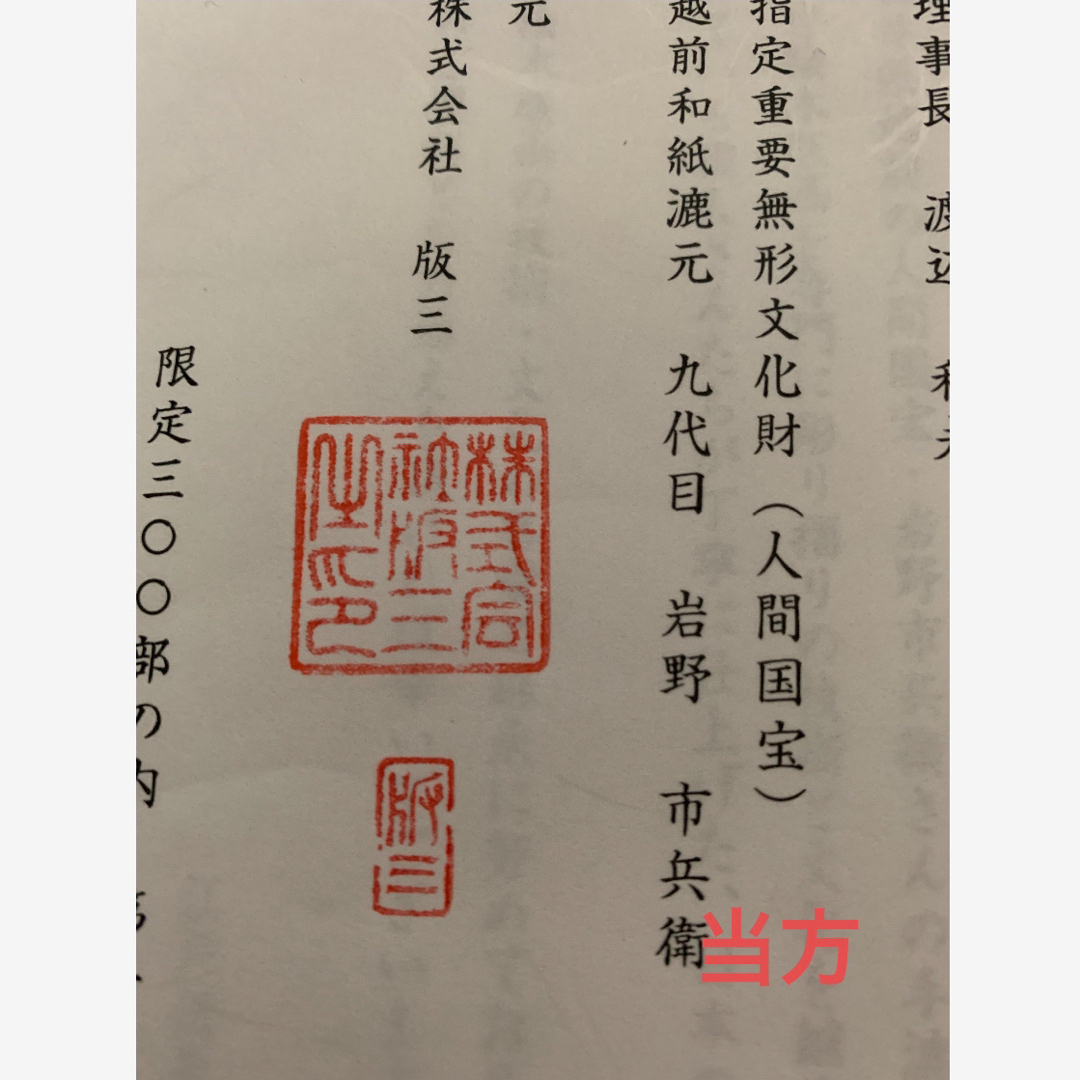 理事長 渡辺
指定重要無形文化財（人間国宝）
越前和紙漉元 九代目 岩野 市兵衛
元
株式会社 版三
株式会社版三之印
版三
限定三〇〇部の内
当方